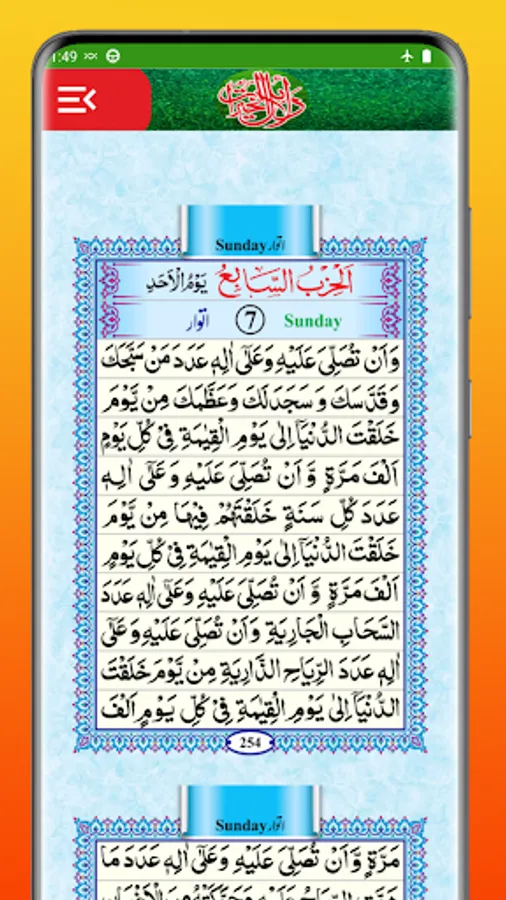 1:49
دلائل الخیرات
Sunday اتوار
اَلْحِزْبُ السَّابِعُ يَوْمُ الْاَحَدِ
اتوار 7 Sunday
وَاَنْ تُصَلِّىَ عَلَيْهِ وَعَلٰٓى اٰلِهٖ عَدَدَ مَنْ سَبَّحَكَ
وَقَدَّسَكَ وَسَجَدَلَكَ وَعَظَّمَكَ مِنْ يَّوْمَ
خَلَقْتَ الدُّنْيَآ اِلٰى يَوْمِ الْقِيٰمَةِ فِىْ كُلِّ يَوْمٍ
اَلْفَ مَرَّةٍ وَّ اَنْ تُصَلِّىَ عَلَيْهِ وَ عَلٰٓى اٰلِهٖ
عَدَدَ كُلِّ سَنَةٍ خَلَقْتَهُمْ فِيْهَا مِنْ يَّوْمَ
خَلَقْتَ الدُّنْيَآ اِلٰى يَوْمِ الْقِيٰمَةِ فِىْ كُلِّ يَوْمٍ
اَلْفَ مَرَّةٍ وَّ اَنْ تُصَلِّىَ عَلَيْهِ وَعَلٰٓى اٰلِهٖ عَدَدَ
السَّحَابِ الْجَارِيَةِ وَاَنْ تُصَلِّىَ عَلَيْهِ وَعَلٰٓى
اٰلِهٖ عَدَدَ الرِّيَاحِ الذَّارِيَةِ مِنْ يَّوْمَ خَلَقْتَ
الدُّنْيَآ اِلٰى يَوْمِ الْقِيٰمَةِ فِىْ كُلِّ يَوْمٍ اَلْفَ
254
Sunday اتوار
مَرَّةٍ وَّاَنْ تُصَلِّىَ عَلَيْهِ وَعَلٰٓى اٰلِهٖ عَدَدَ مَا